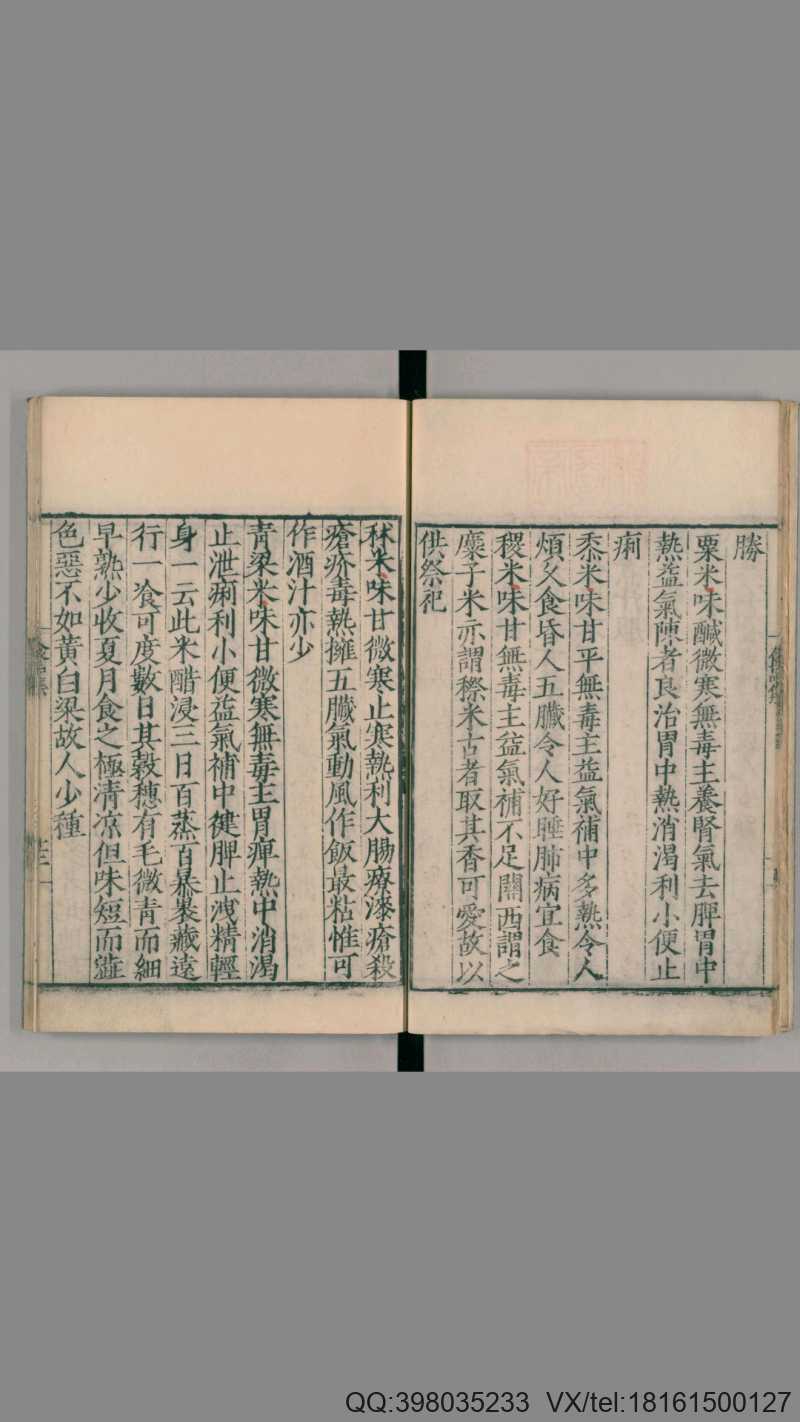 勝
粟米味鹹微寒無毒主養腎氣去脾胃中
熱益氣陳者良治胃中熱消渴利小便止
痢
黍米味甘平無毒主益氣補中多熱令人
煩久食昏人五臟令人好睡肺病宜食
稷米味甘無毒主益氣補不足關西謂之
糜子米亦謂穄米古者取其香可愛故以
供祭祀
秫米味甘微寒止寒熱利大腸療漆瘡殺
瘡疥毒熱擁五臟氣動風作飯最粘惟可
作酒汁亦少
青粱米味甘微寒無毒主胃痺熱中消渴
止泄痢利小便益氣補中健脾止洩精輕
身一云此米醋浸三日百蒸百暴裹藏遠
行一飡可度數日其穀穗有毛微青而細
早熟少收夏月食之極清凉但味短而澁
色惡不如黃白粱故人少種
QQ:398035233 VX/tel:18161500127